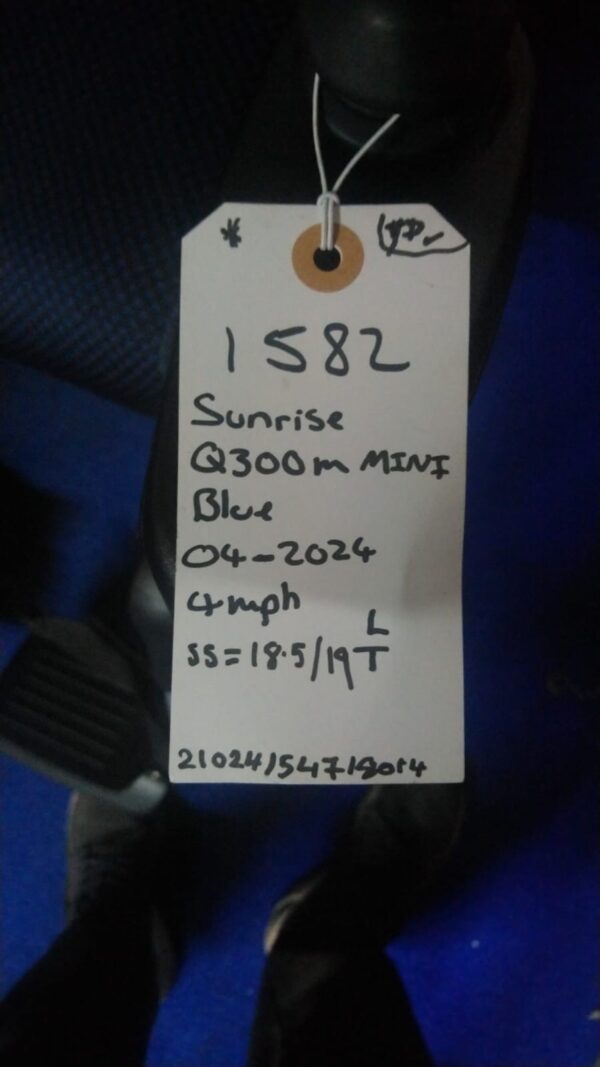 *
1582
Sunrise
Q300m MINI
Blue
04-2024
4mph
L
SS=18.5/19 T